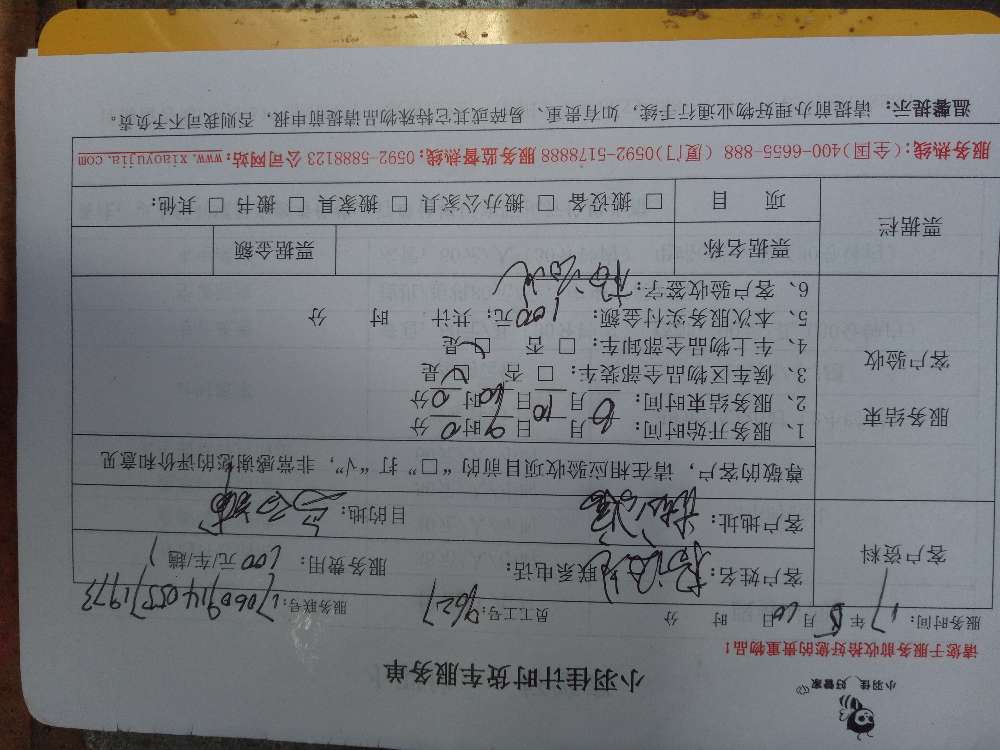 小羽佳 好管家
小羽佳计时货车服务单
请您于服务前收拾好您的贵重物品！
服务时间： 17年 8月 10日 时 分 员工号： 9627 服务联号：
客户资料
客户姓名： 联系电话： 服务费用： 100 元/车/趟
客户地址： 目的地：
尊敬的客户，请在相应验收项目前的“□”打“√”，非常感谢您的评价和意见
服务结束
客户验收
1、服务开始时间： 8 月 10 日 9 时 0 分
2、服务结束时间： 8 月 10 日 10 时 0 分
3、候车区物品全部装车：□ 否 □ 是
4、车上物品全部卸车：□ 否 □ 是
5、本次服务实付金额： 100 元；共计. 时 分
6、客户验收签字：
票据栏
票据名称 票据金额
项 目 □ 搬设备 □ 搬办公家具 □ 搬家具 □ 搬书 □ 其他：
服务热线：(全国)400-6655-888 (厦门)0592-5178888 服务监督热线：0592-5888123 公司网站：www.xiaoyujia.com
温馨提示：请提前办理好物业通行手续，如有贵重、易碎或其它特殊物品请提前申报，否则我司不予负责。